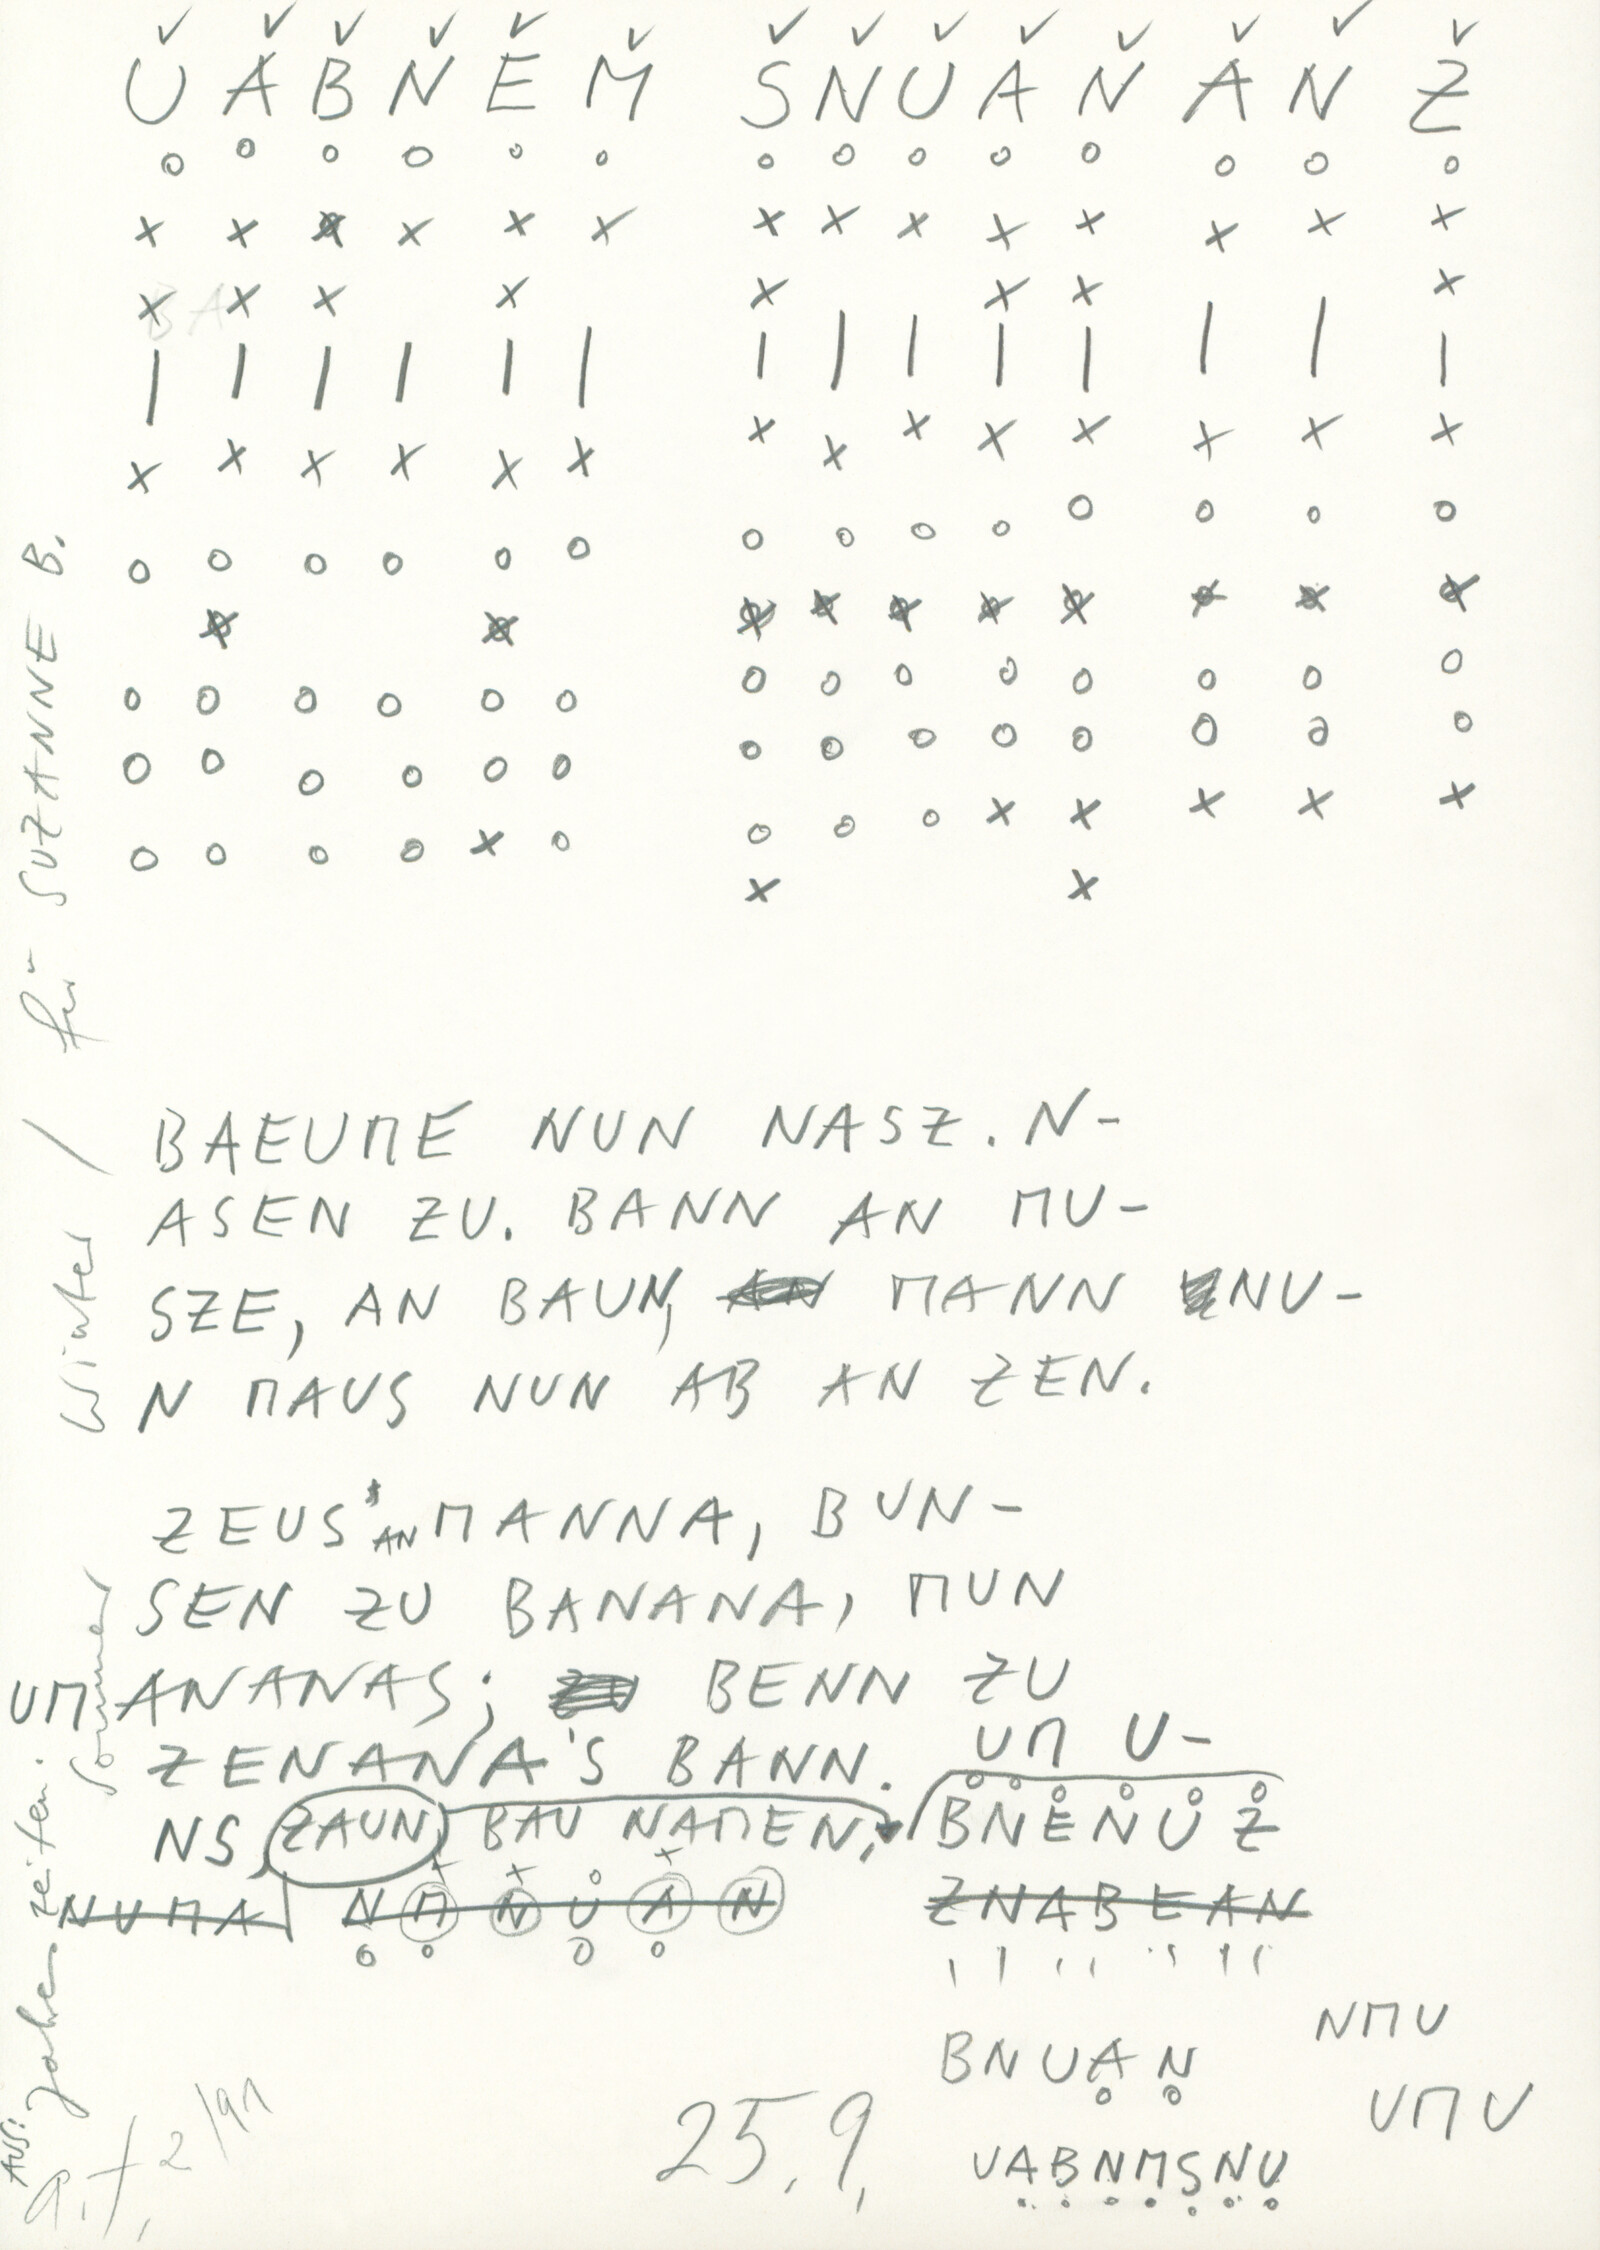 U A B N E M S N U A N A N Z
BA
BAEUME NUN NASZ. N-
ASEN ZU. BANN AN MU-
SZE, AN BAUN, AN MANN NU-
N MAUS NUN AB AN ZEN.
ZEUS' AN MANNA, BUN-
SEN ZU BANANA, MUN
UM ANANAS; BENN ZU
ZENANA'S BANN. UM U-
NS, ZAUN BAU NAMEN, BNENUZ
NUMA NMNUAN ZNABEAN
NMU
BNUAN
UMU
UABNMSNU
25.9.
für SUZANNE B.
Winter /
Sommer
AUS: Jahreszeiten.
2/91